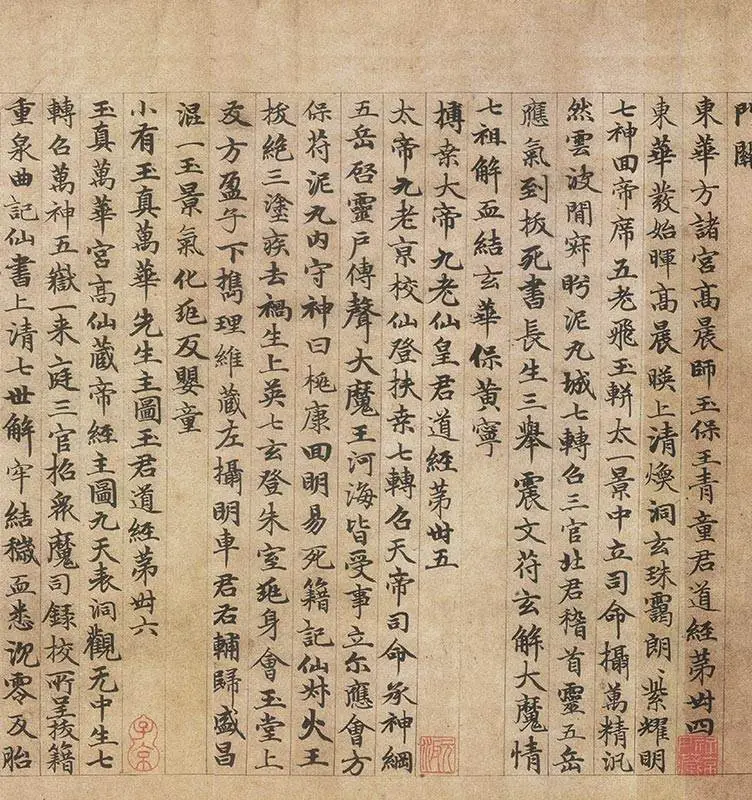 門關
東華方諸宮高晨師玉保王青童君道經第卅四
東華發始暉高晨暎上清煥洞玄珠靄朗、紫耀明
七神回帝席五老飛玉軿太一景中立司命攝萬精汎
然雲波閒寂眄泥丸城七轉召三官北君稽首靈五岳
應氣到拔死書長生三舉震文苻玄解大魔情
七祖解血結玄華保黃寧
榑桒大帝九老仙皇君道經第卅五
太帝九老京校仙登扶桒七轉召天帝司命承神綱
五岳啓靈戶傳聲大魔王河海皆受事立尒應會方
保苻泥丸內守神曰回明易死籍記仙火王
拔絕三塗疾去禍生上英七玄登朱室身會玉堂上
方盈下理維藏左攝明車君右輔歸盛昌
混一玉景氣化反嬰童
小有玉真萬華先生主圖玉君道經第卅六
玉真萬華宮高仙藏帝經主圖九天表洞觀无中生七
轉召萬神五嶽一来庭三官招眾魔司錄校所呈拔籍
重泉曲記仙書上清七世解牢結穢血悉沉零反胎
子京